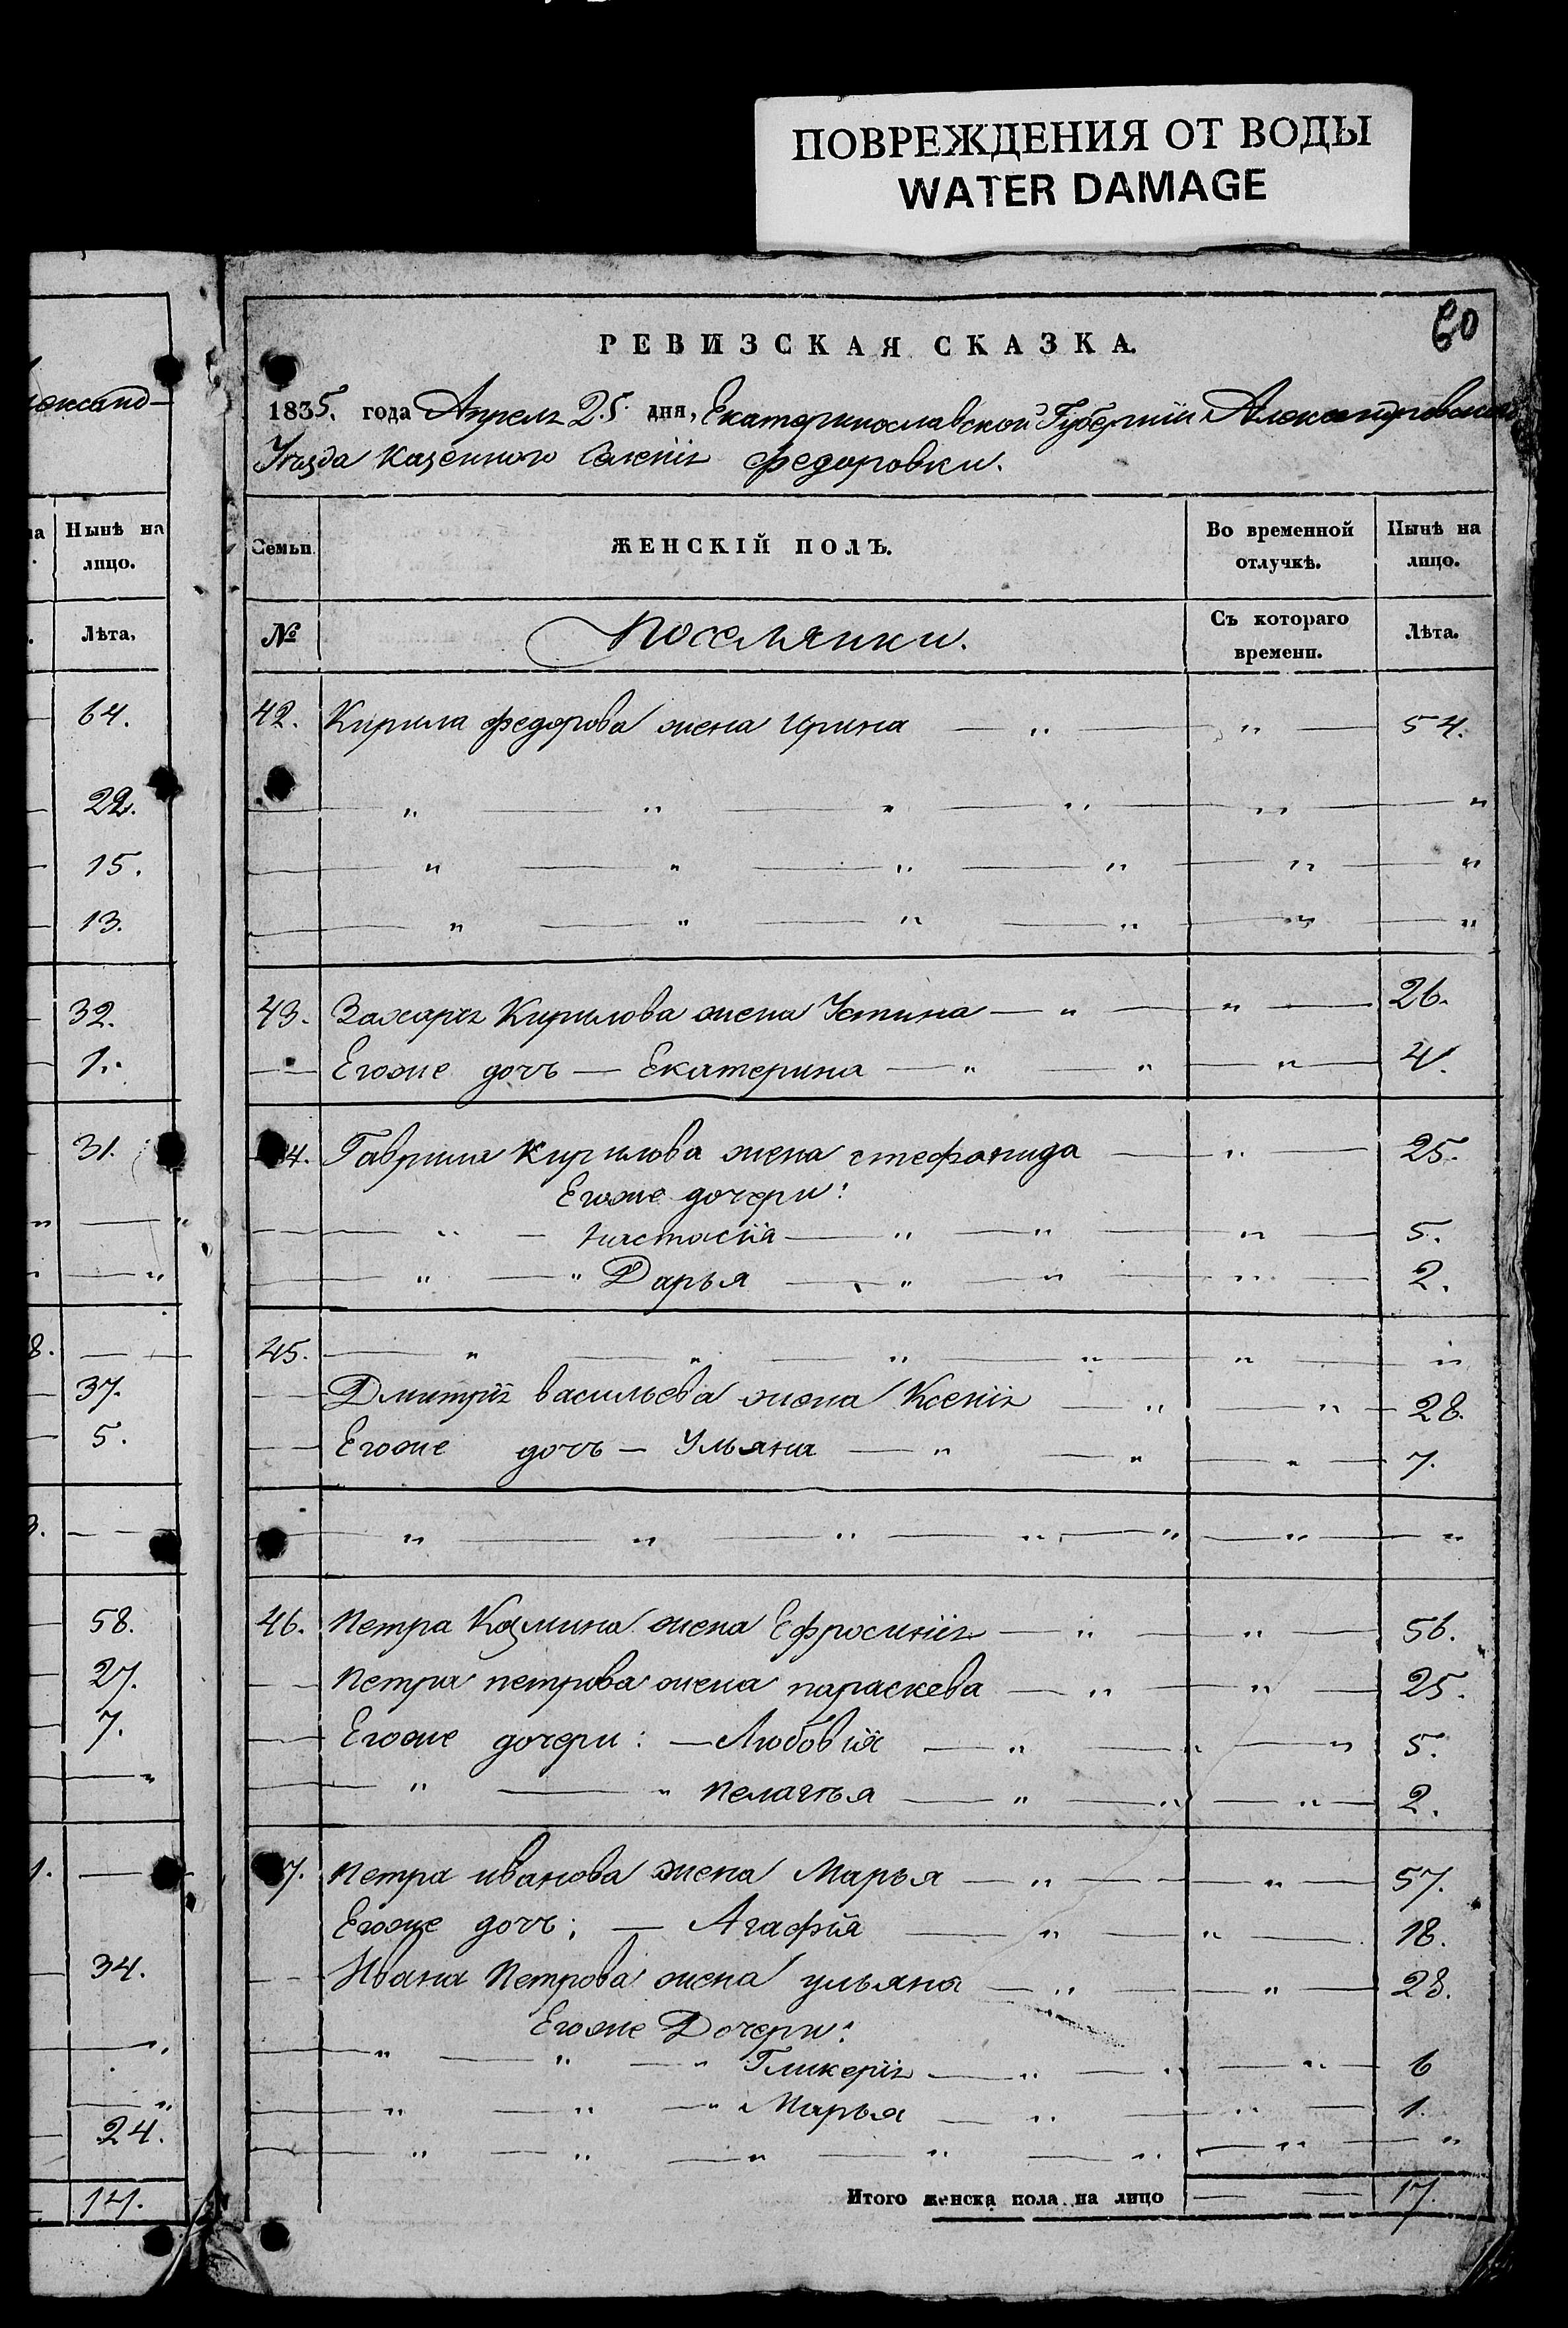 ПОВРЕЖДЕНИЯ ОТ ВОДЫ
WATER DAMAGE
60
РЕВИЗСКАЯ СКАЗКА.
1835. года Апреля 25. дня, Екатеринославской Губернии Александровскаго
Уезда Казенного Селения Федоровки.
Семьи. ЖЕНСКІЙ ПОЛЪ. Во временной отлучкѣ. Нынѣ на лицо.
№ Поселянки. Съ котораго времени. Лѣта.
42. Кирила Федорова жена Ирина — " — " — 54.
— " — " — " — " — " — "
— " — " — " — " — " — "
— " — " — " — " — " — "
43. Захария Кирилова жена Устина — " — " — 26.
— Егоже дочь — Екатерина — " — " — " — 4.
44. Гаврила Кирилова жена стефанида — " — 25.
Егоже дочери:
— " — Настасія — " — " — " — 5.
— " — " Дарья — " — " — " — 2.
45. — " — " — " — " — " — "
— Дмитрія васильева жена Ксенія — " — " — 28.
— Егоже дочь — Ульяна — " — " — " — 7.
— " — " — " — " — " — " — "
46. Петра Козмина жена Ефросинія — " — " — 56.
— Петра петрова жена параскева — " — " — 25.
— Егоже дочери: — Любовія — " — " — " 5.
— " — " пелагѣя — " — " — " — 2.
47. Петра иванова жена Марья — " — " — 57.
Егоже дочь; — Агафія — " — " — 18.
— Ивана Петрова жена ульяна — " — " — 28.
Егоже Дочери:
— " — " — " Гликерія — " — " — " — 6
— " — " — " Марья — " — " — 1.
— " — " — " — " — " — " — "
Итого женска пола на лицо — — 17.
лександ-
Нынѣ на лицо.
Лѣта.
64.
22.
15.
13.
32.
1.
31.
"
"
8. —
37.
5.
3. — —
58.
27.
7.
"
1. —
34.
"
"
24.
14.